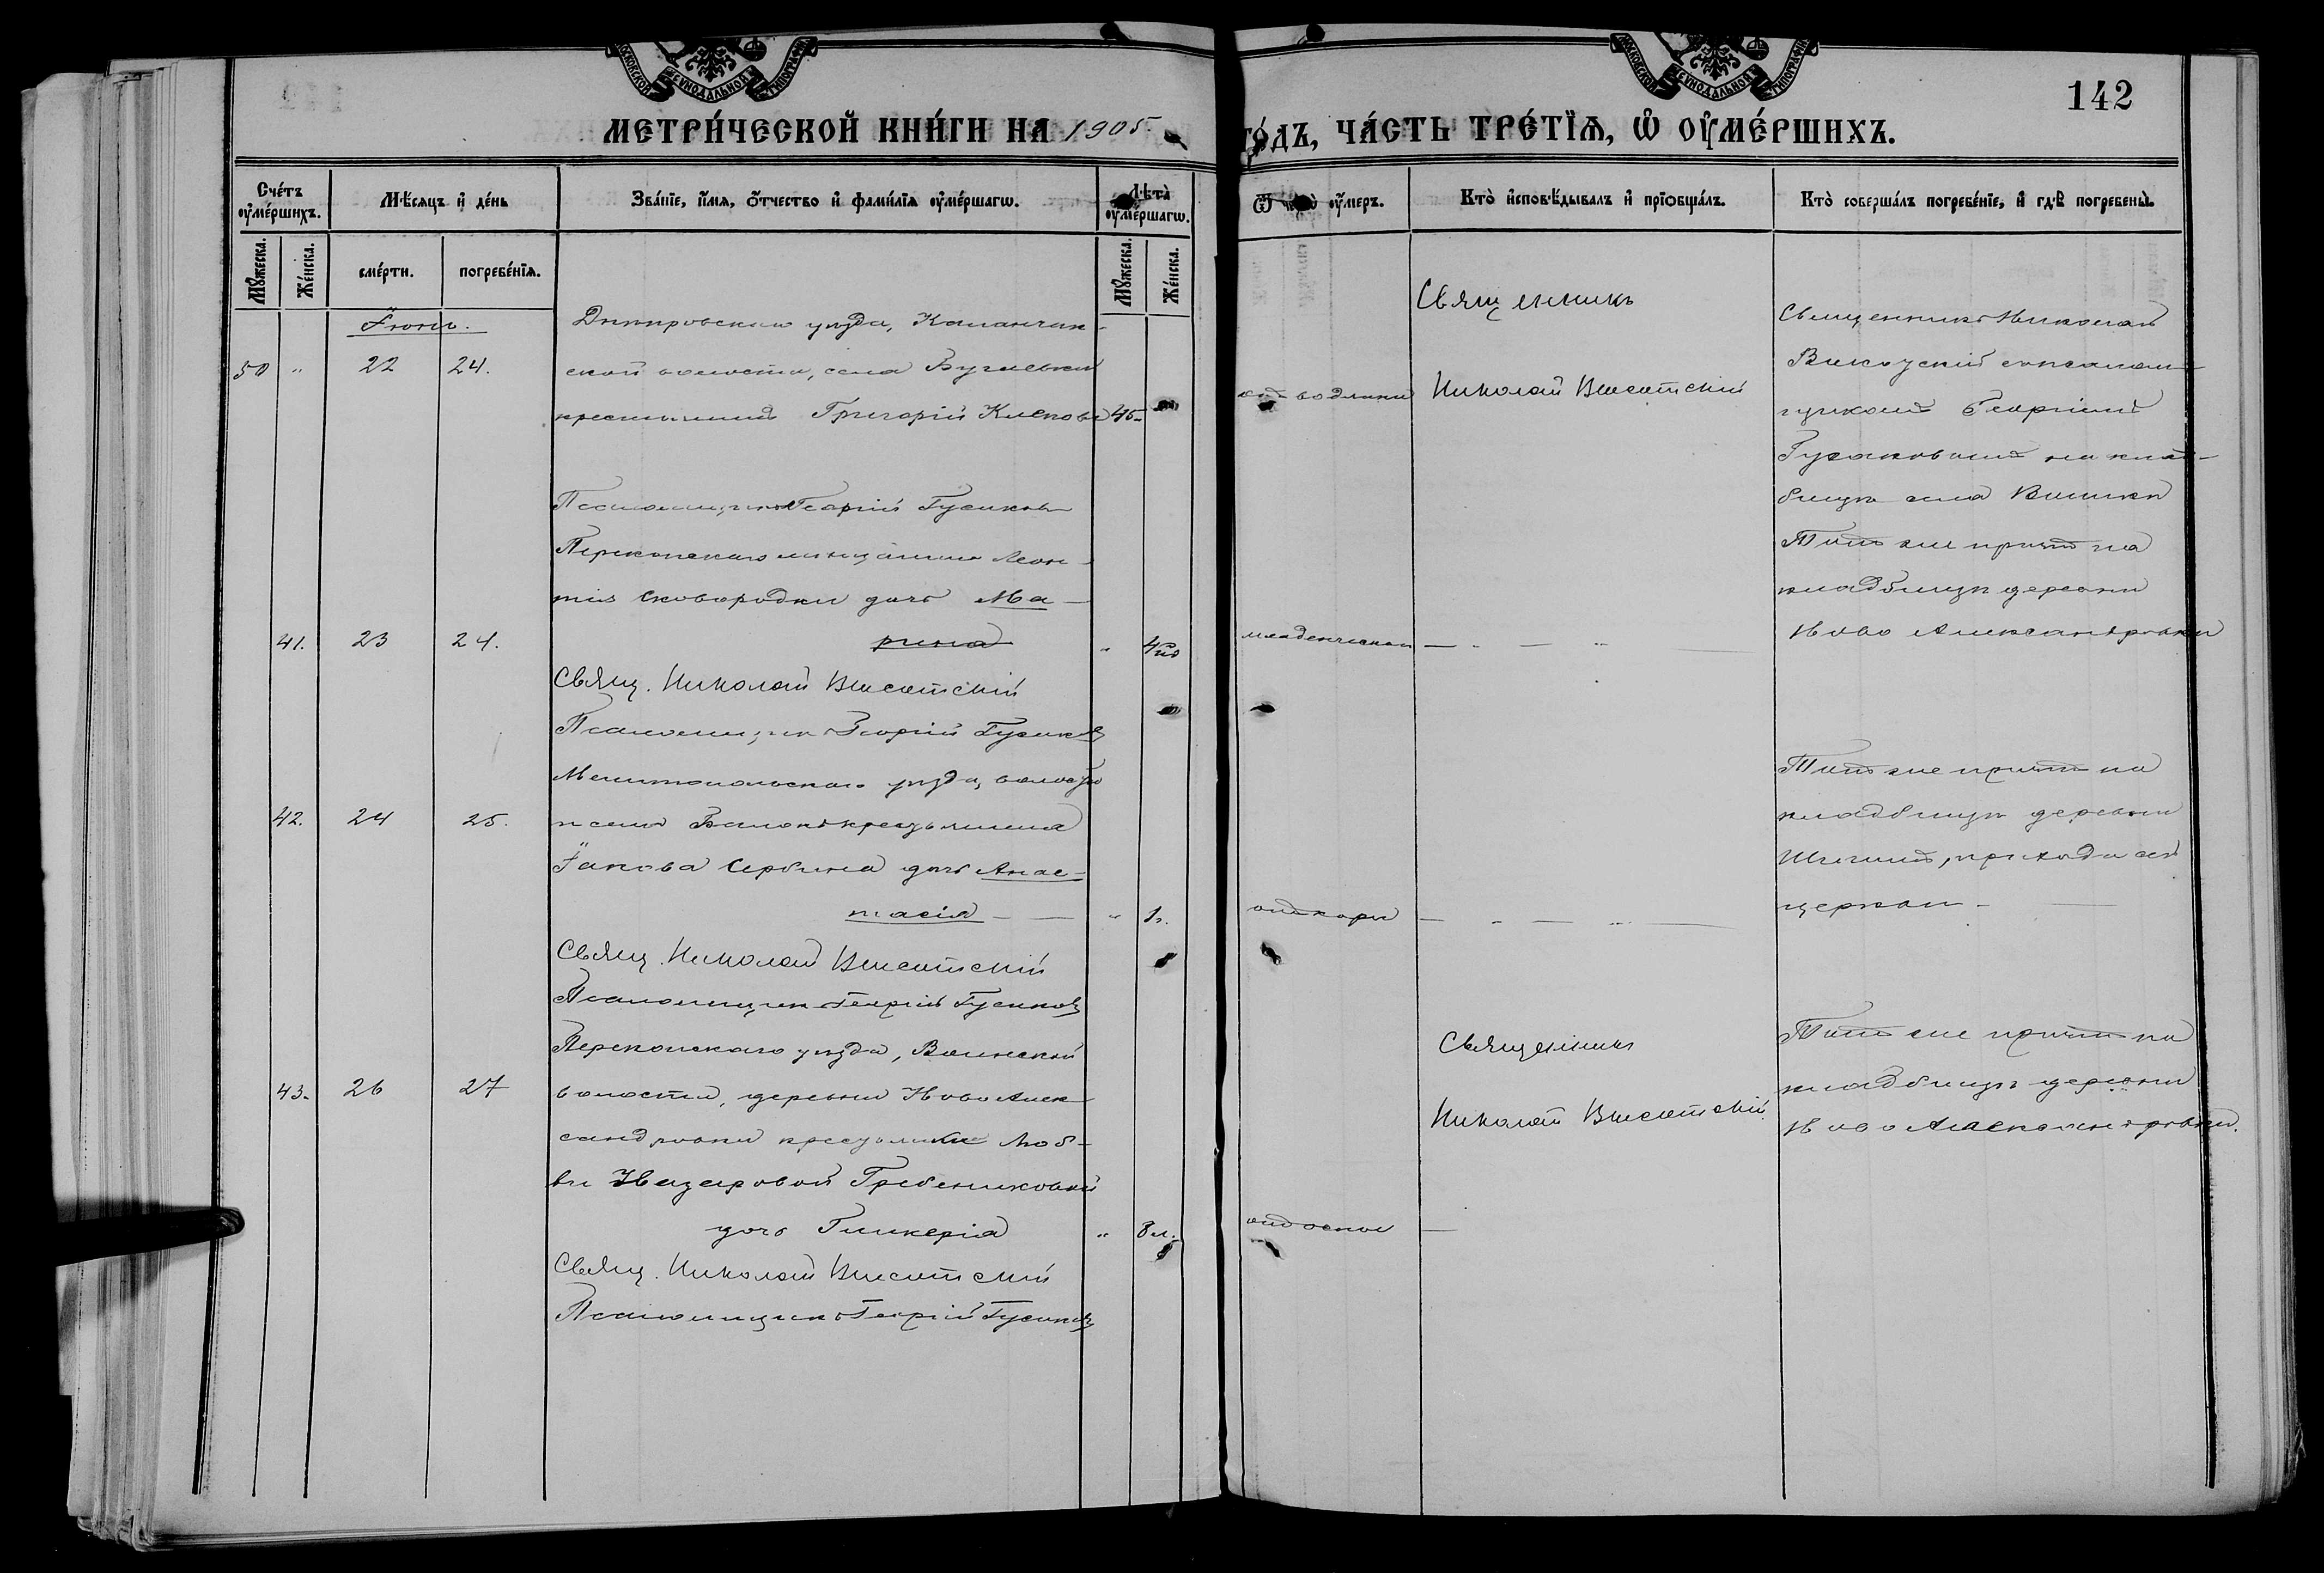 142
МЕТРИ́ЧЕСКОЙ КНИ́ГИ НА 1905.
ГО́ДЪ, ЧА́СТЬ ТРЕ́ТІЯ, Ѽ ОУМЕ́РШИХЪ.
Сче́тъ оуме́ршихъ.
Мѣ́сяцъ и де́нь
Зва́ніе, и́мя, о́тчество и фами́лія оуме́ршагѡ.
Лѣта̀ оуме́ршагѡ.
Ѿ оу́меръ.
Кто̀ исповѣ́дывалъ и пріобща́лъ.
Кто̀ соверша́лъ погребе́ніе, и гдѣ̀ погребены̀.
Мꙋ́жеска.
Же́нска.
сме́рти.
погребе́нія.
Мꙋ́жеска.
Же́нска.
Іюнь.
Днѣпровскаго уѣзда, Каланчак-
50 " 22 24.
ской волости, села
крестьянинъ Григорій 45
отъ водянки
Священникъ
Николай Высотскій
Священникъ Николай
Высотскій съ псалом-
щикомъ Георгіемъ
Гусаковымъ на клад-
бищѣ села
Псаломщикъ Георгій Гусаковъ
Перекопскаго мѣщанина Леон-
тія Сковородки дочь Ма-
41. 23 24.
рина " 4
младенческой
Тотъ же причтъ на
кладбищѣ деревни
Ново Александровки
Свящ. Николай Высотскій
Псаломщикъ Георгій Гусаковъ
Мелитопольскаго уѣзда, волости
42. 24 25.
и села крестьянина
Іакова Сербина дочь Анас-
тасія " 1 г.
отъ кори
Тотъ же причтъ на
кладбищѣ деревни
прихода сей
церкви
Свящ. Николай Высотскій
Псаломщикъ Георгій Гусаковъ
Перекопскаго уѣзда, Воинской
43. 26 27
волости, деревни Ново Алек-
сандровки крестьянки Люб-
ви Назаровой Гребениковой
дочь Гликерія " 8 л.
отъ оспы
Священникъ
Николай Высотскій
Тотъ же причтъ на
кладбищѣ деревни
Ново Александровки.
Свящ. Николай Высотскій
Псаломщикъ Георгій Гусаковъ